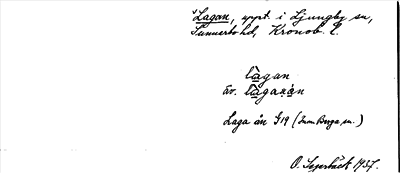 Lagan, uppt i Ljungby sn,
Sunnerbo hd, Kronob. l.
lagan
äv. lagaån
Laga ån J19 (Inom Berga sn.)
O. Segerbäck 1937.